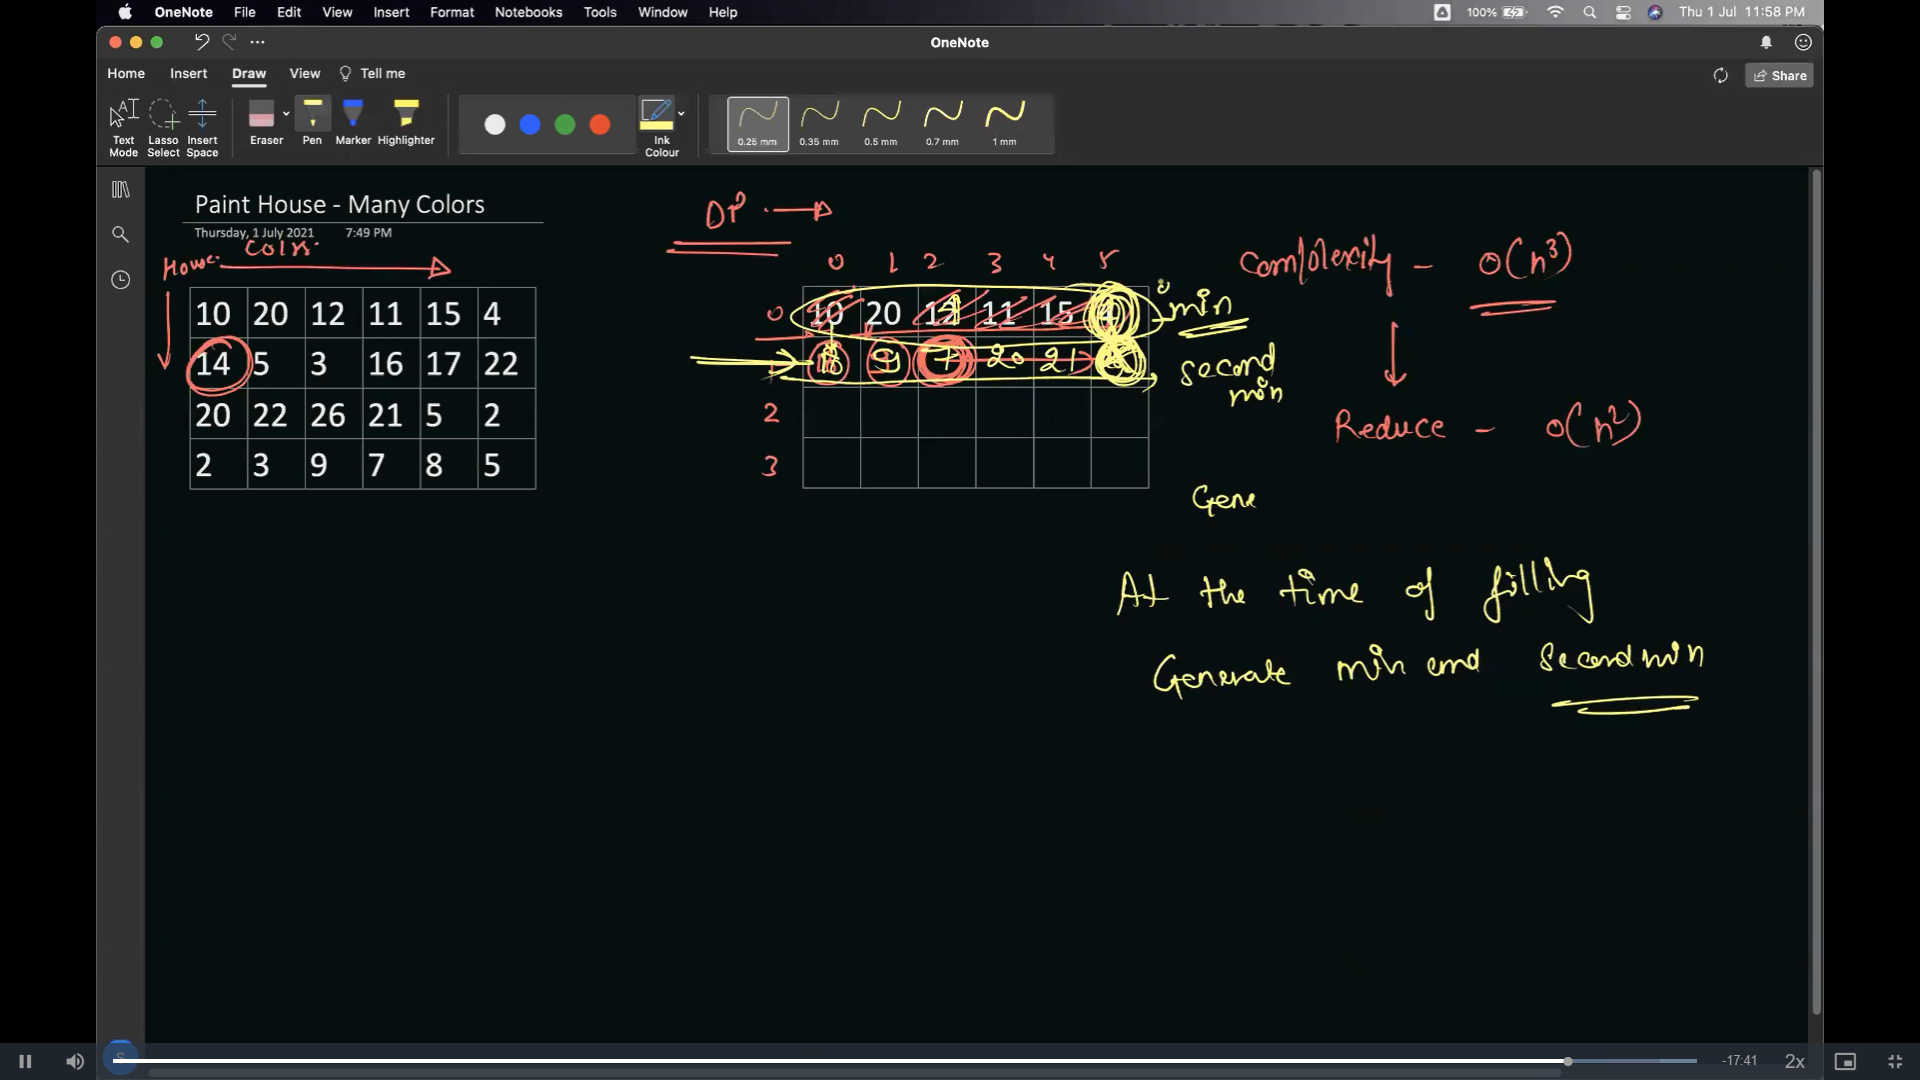 OneNote File Edit View Insert Format Notebooks Tools Window Help 100% Thu 1 Jul 11:58 PM
OneNote
Home Insert Draw View Tell me Share
Text Mode
Lasso Select
Insert Space
Eraser
Pen
Marker
Highlighter
Ink Colour
0.25 mm
0.35 mm
0.5 mm
0.7 mm
1 mm
Paint House - Many Colors
Thursday, 1 July 2021 7:49 PM
House
10 20 12 11 15 4
14 5 3 16 17 22
20 22 26 21 5 2
2 3 9 7 8 5
DP
0 1 2 3 4 5
0 10 20 11 15 4 min
9 7 20 21 second
min
2
3
Complexity - O(n³)
Reduce - O(n²)
Gene
At the time of filling
Generate min and second min
-17:41 2x